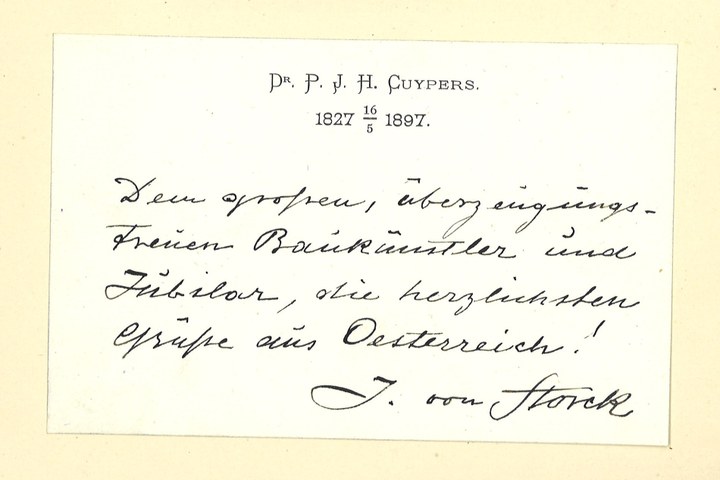 Dr. P. J. H. Cuypers.
1827 16/5 1897.
Dem großen, überzeugungs-
treuen Baukünstler und
Jubilar, die herzlichsten
Grüße aus Oesterreich!
J. von Storck